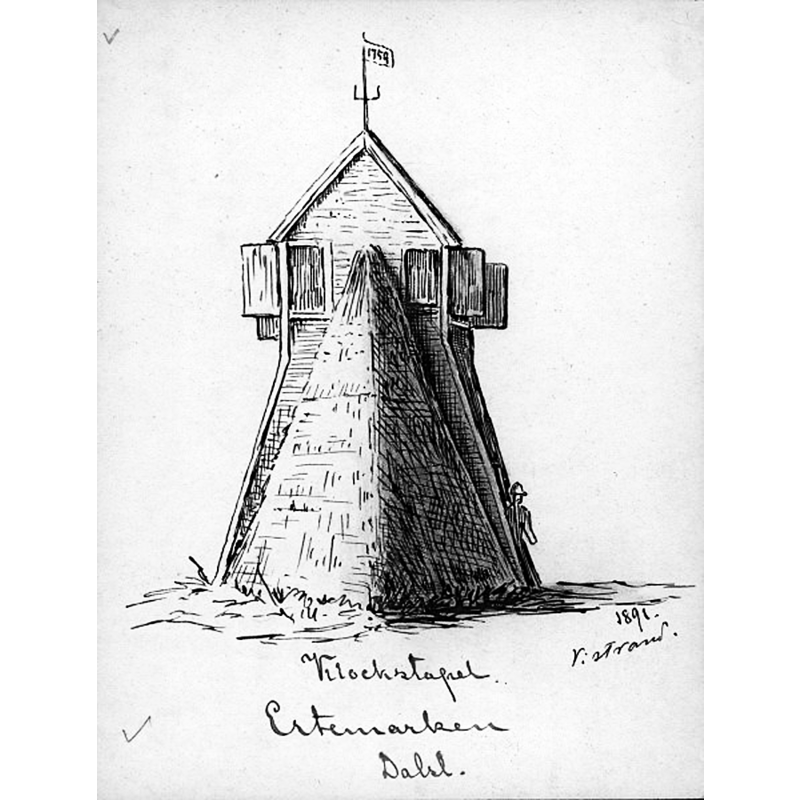 1759
1891.
V:strand.
Klockstapel.
Ertemarken
Dalsl.